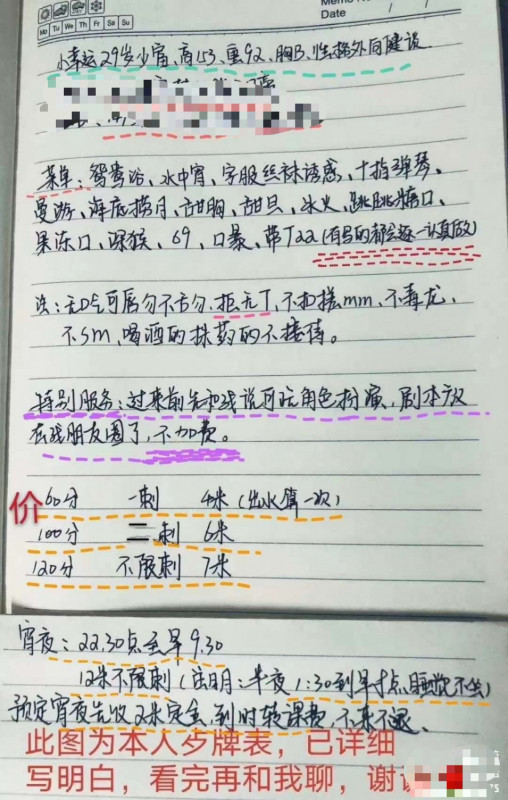 Memo No.
Mo Tu We Th Fr Sa Su
Date / /
29岁少富、高153、重92、胸B、性格外向
菜单：鸳鸯浴、水中宵、字服丝袜诱惑、十指弹琴、
漫游、海底捞月、甜胸、甜旦、冰火、跳跳糖口、
果冻口、深猴、69、口暴、带T22（有写的都会逐一认真做）
拒无T、不扣搓mm、不毒龙、
不sm、喝酒的抹药的不接待。
特别服务：过来前先和我说可玩角色扮演、剧本
在我朋友圈了，不加费。
价
60分 一刺 4米（出水算一次）
100分 二刺 6米
120分 不限刺 7米
宵夜：22.30点至早9.30
12米不限刺（注明：半夜1:30到早
预定宵夜先收2米定金，到时转课费，不来不退、
此图为本人夕牌表，已详细
写明白，看完再和我聊，谢